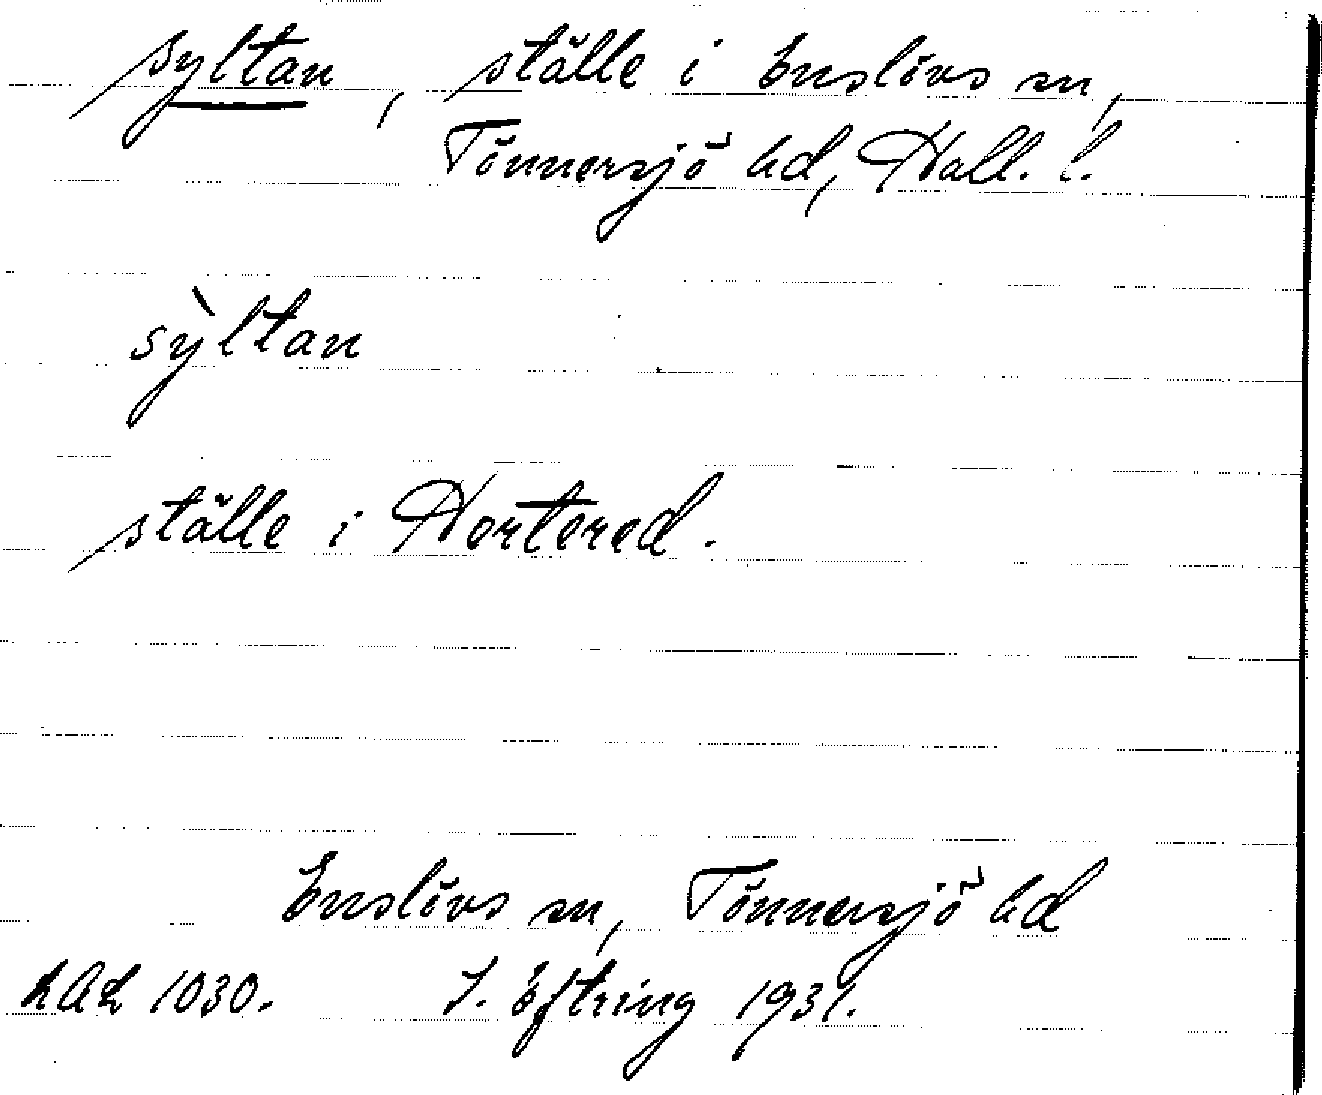 syltan, ställe i Enslövs sn,
Tönnersjö hd, Hall. l.
sỳltan
ställe i Hortered.
Enslövs sn, Tönnersjö hd
LAL 1030. J. Eftring 1931.